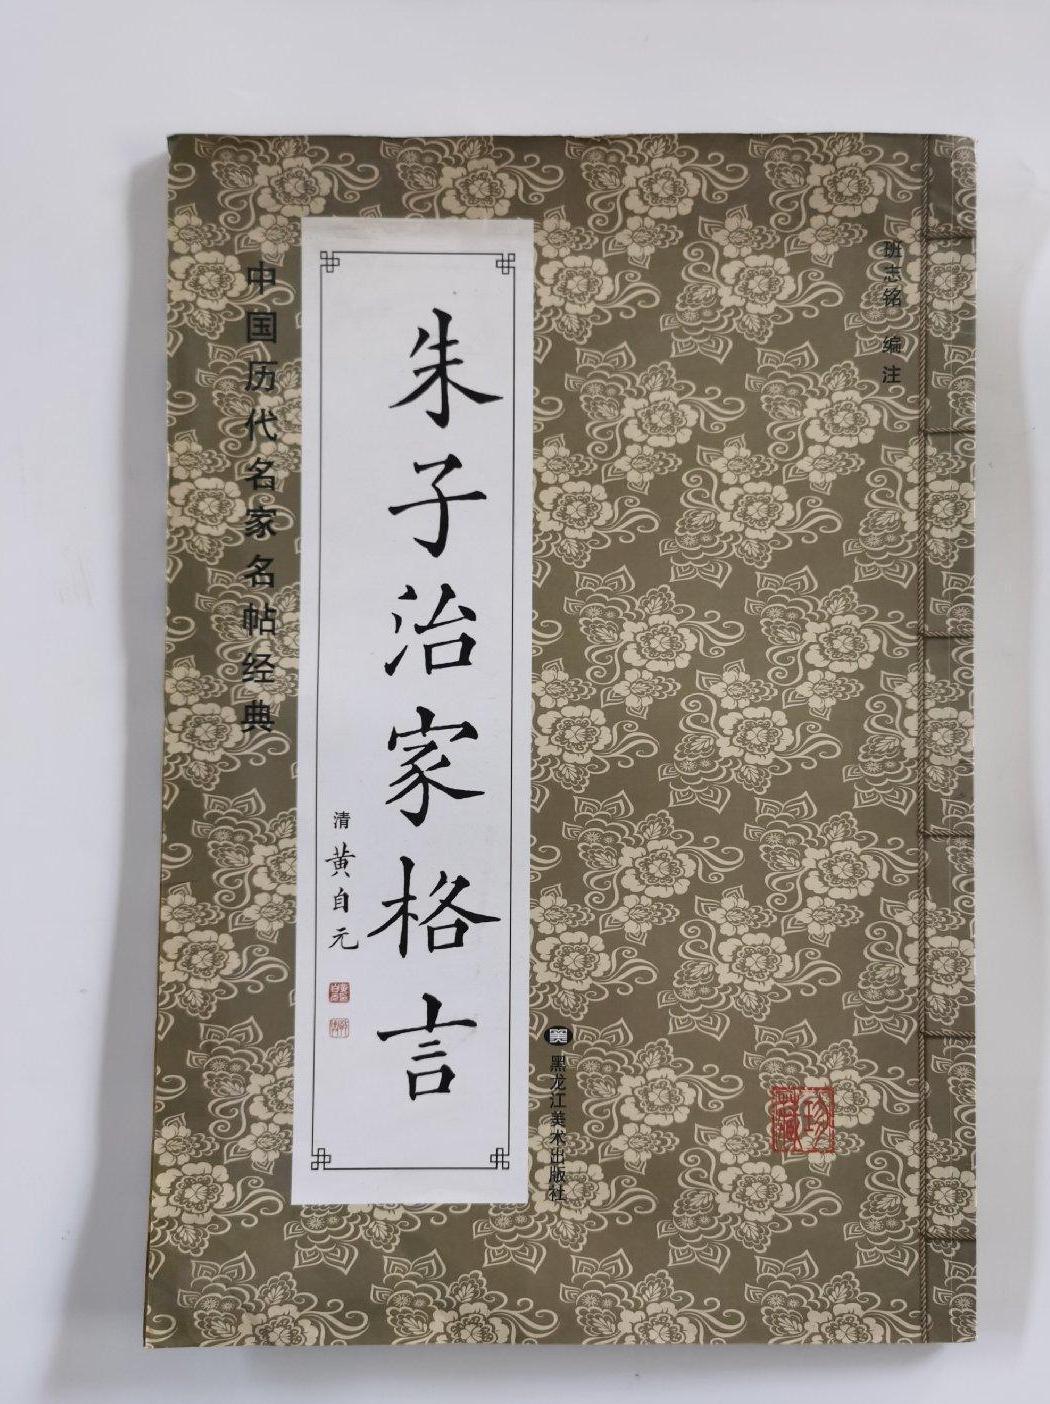 班志铭 编注
朱子治家格言
清 黄自元
中国历代名家名帖经典
黑龙江美术出版社
珍藏